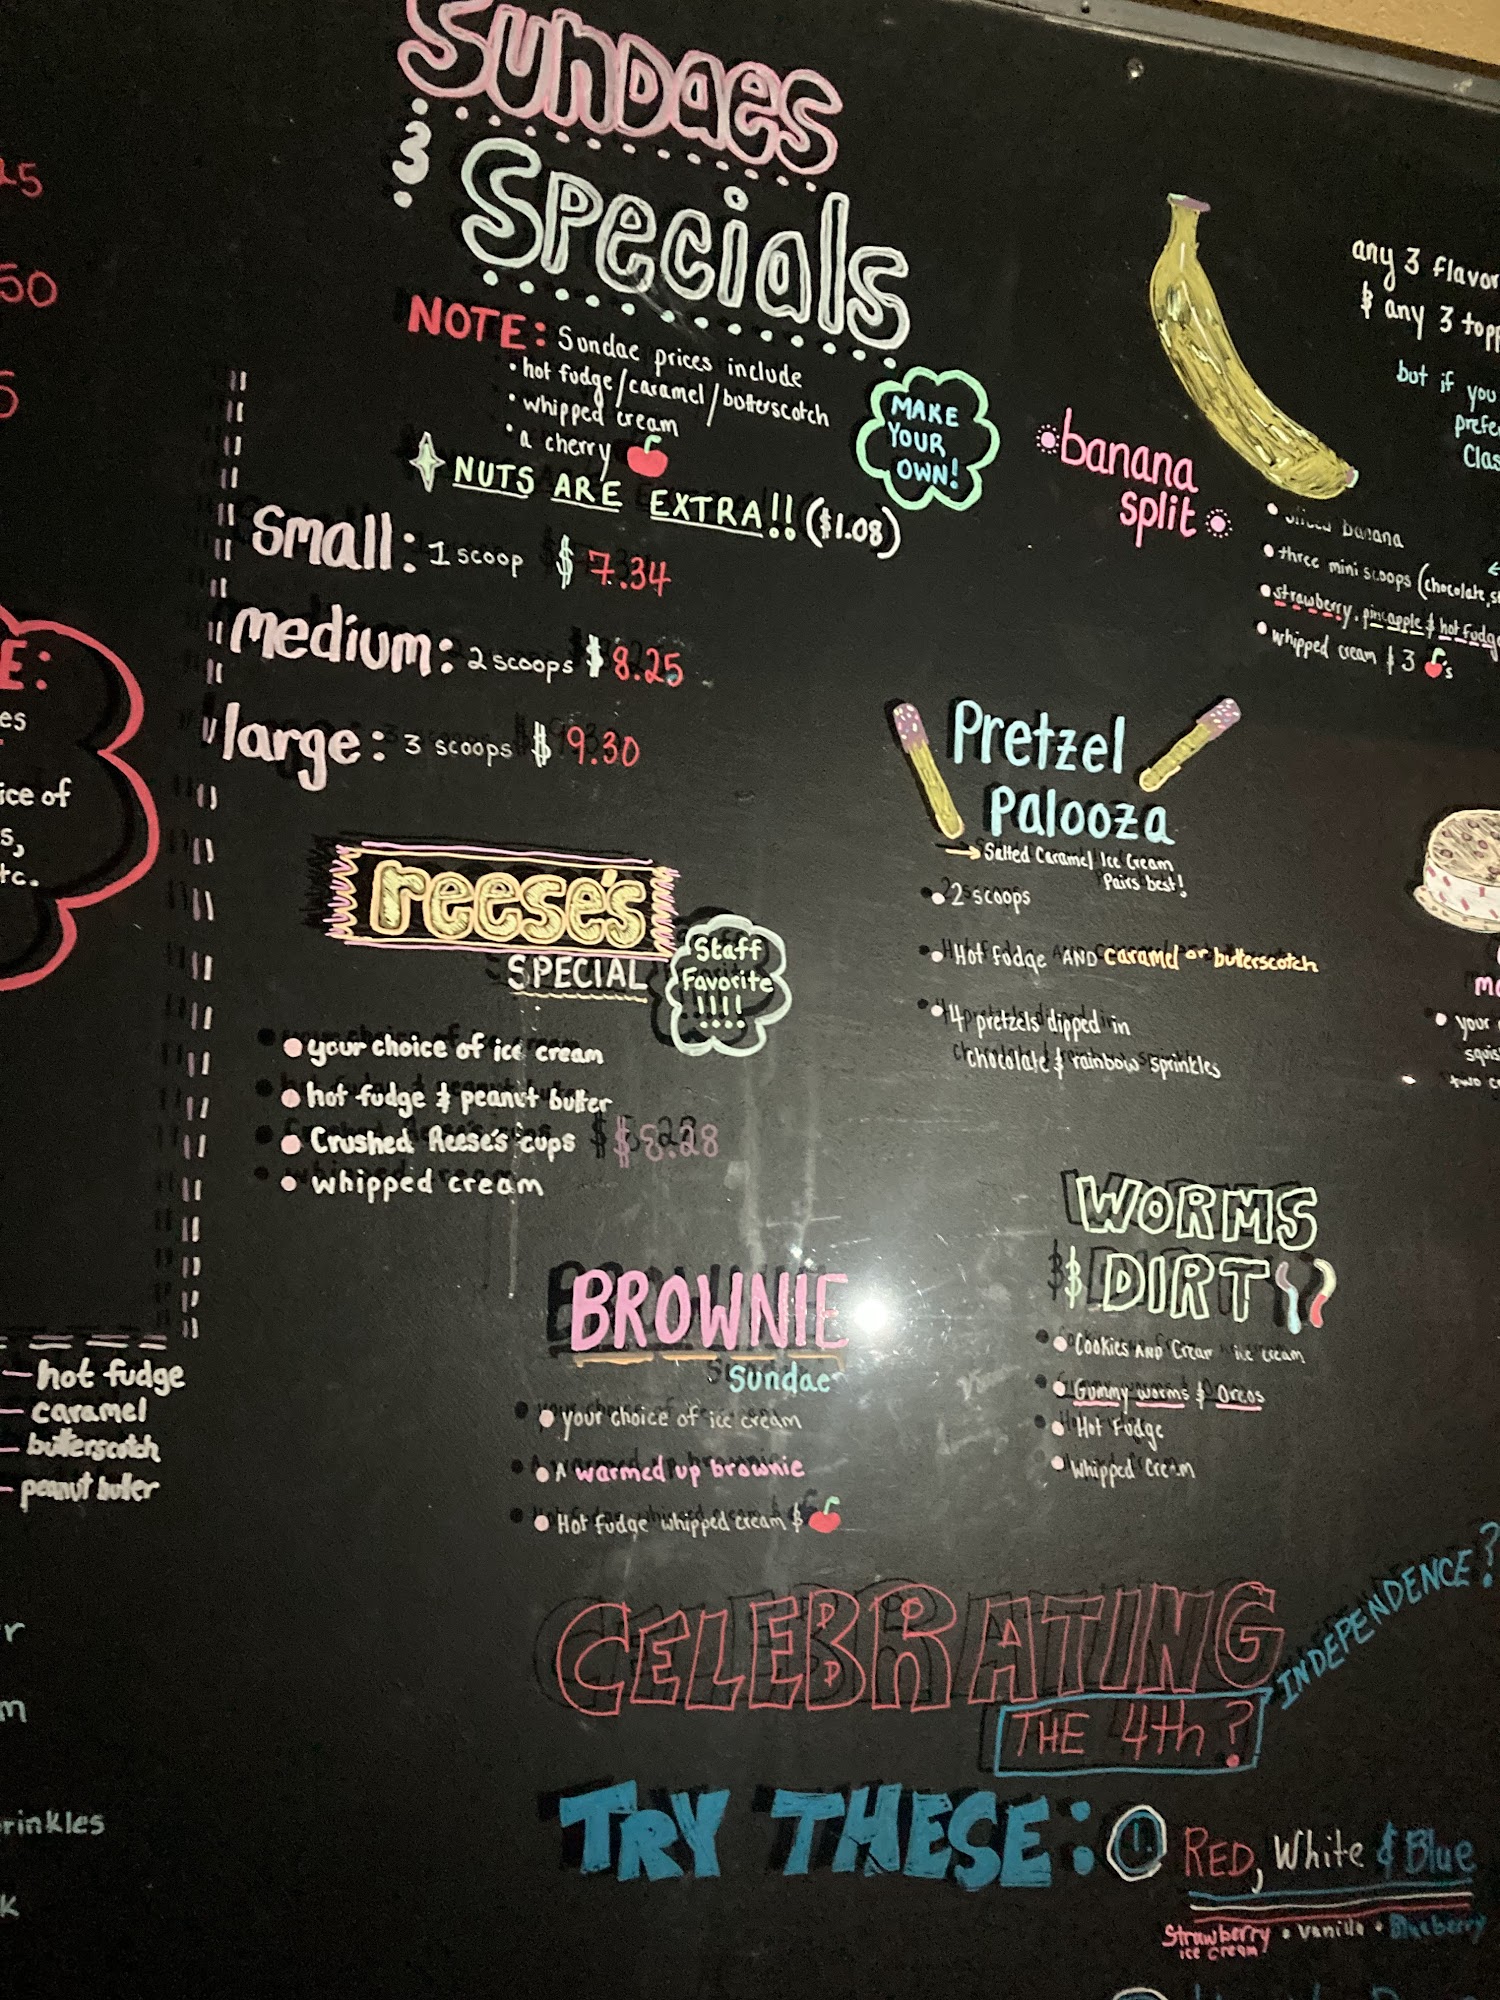 Sundaes
& Specials
NOTE: Sundae prices include
• hot fudge/caramel/butterscotch
• whipped cream
• a cherry
NUTS ARE EXTRA!! ($1.08)
MAKE
YOUR
OWN!
small: 1 scoop $7.34
medium: 2 scoops $8.25
large: 3 scoops $9.30
reese's
SPECIAL
Staff
Favorite
!!!!
• your choice of ice cream
• hot fudge & peanut butter
• Crushed Reese's cups $8.28
• whipped cream
banana
split
any 3 flavor
& any 3 topp
but if you
prefe
Clas
• sliced banana
• three mini scoops (chocolate, st
• strawberry, pineapple & hot fudge
• whipped cream & 3 's
Pretzel
Palooza
→ Salted Caramel Ice Cream
Pairs best!
• 2 scoops
• Hot fudge AND caramel or butterscotch
• 4 pretzels dipped in
chocolate & rainbow sprinkles
• your
squis
two c
WORMS
& DIRT
• Cookies AND Cream ice cream
• Gummy worms & Oreos
• Hot Fudge
• Whipped Cream
BROWNIE
Sundae
• your choice of ice cream
• A warmed up brownie
• Hot fudge whipped cream &
CELEBRATING
THE 4th?
INDEPENDENCE?
TRY THESE: 1. RED, White & Blue
Strawberry • vanilla • Blueberry
ice cream
50
5
E:
es
ice of
s,
tc.
— hot fudge
— caramel
— butterscotch
— peanut butter
r
m
rinkles
k